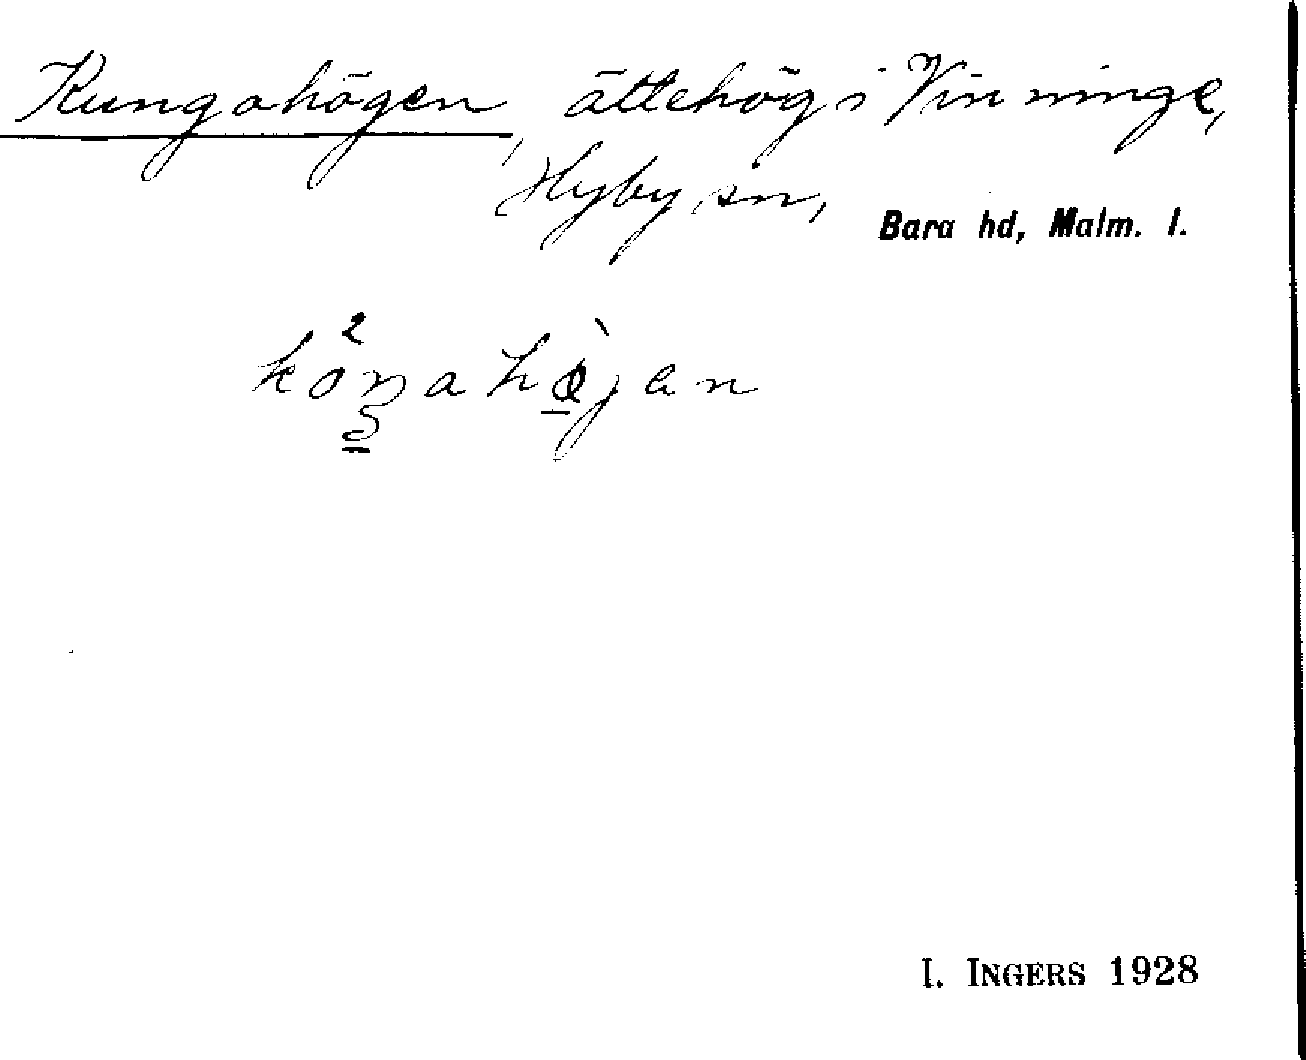 Kungahögen, ättehög i Vinninge,
Hyby sn,
Bara hd, Malm. l.
kȯ²ŋahø̀jen
I. INGERS 1928